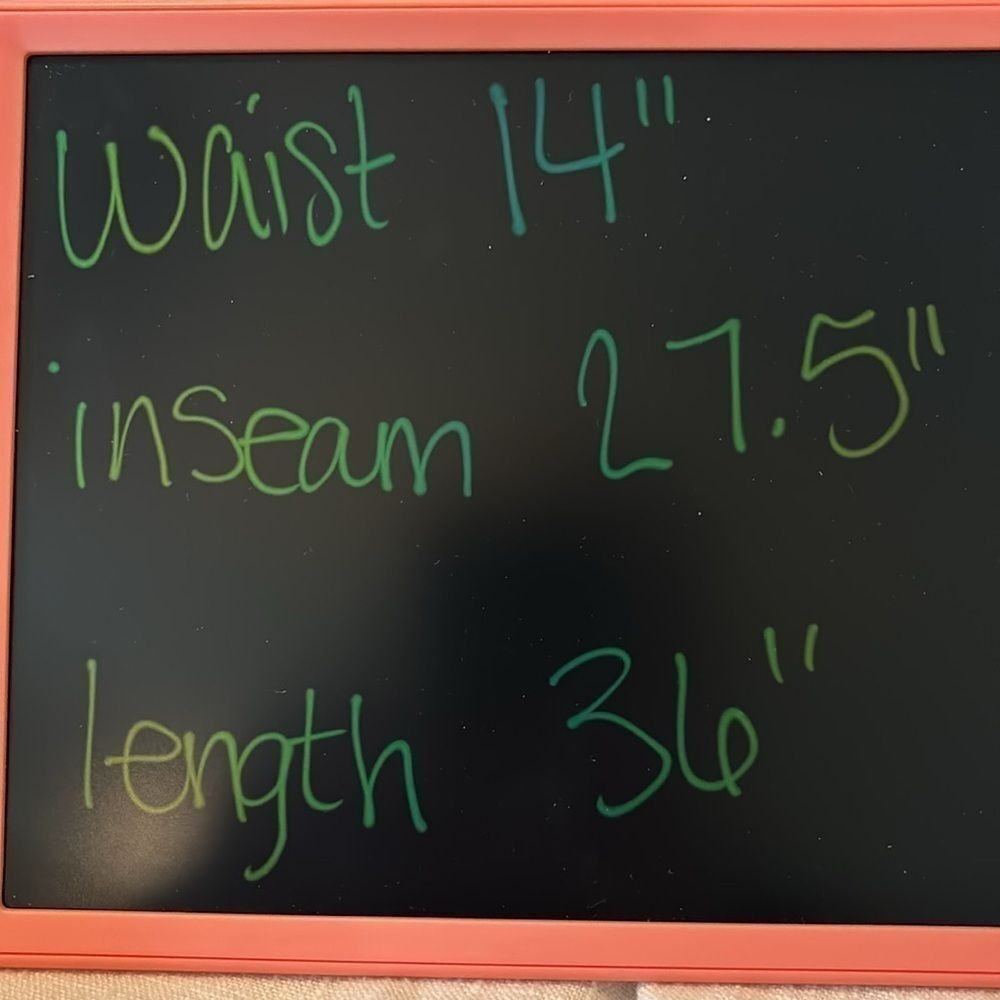 Waist 14"
inseam 27.5"
length 36"